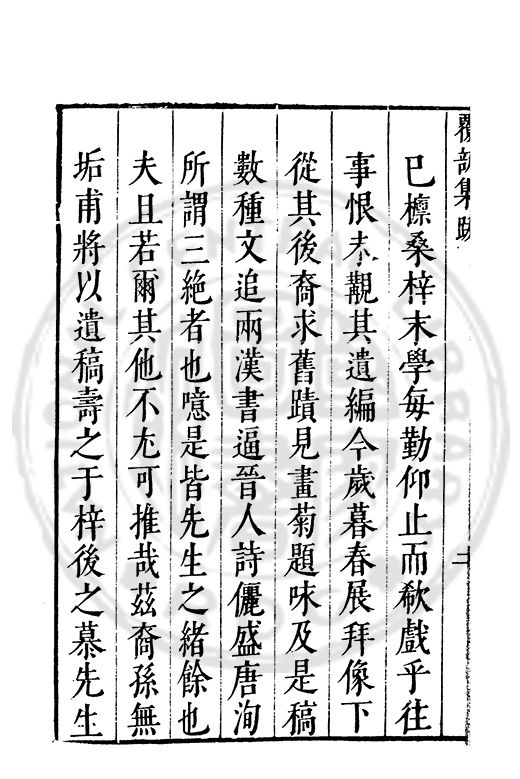 覆瓿集跋
巳櫽桑梓末學每勤仰止而欷戲乎往
事恨未覩其遺編今歲暮春展拜像下
從其後裔求舊蹟見畫菊題味及是稿
數種文追兩漢書逼晉人詩儷盛唐洵
所謂三絶者也噫是皆先生之緒餘也
夫且若爾其他不尤可推哉茲裔孫無
垢甫將以遺稿壽之于梓後之慕先生